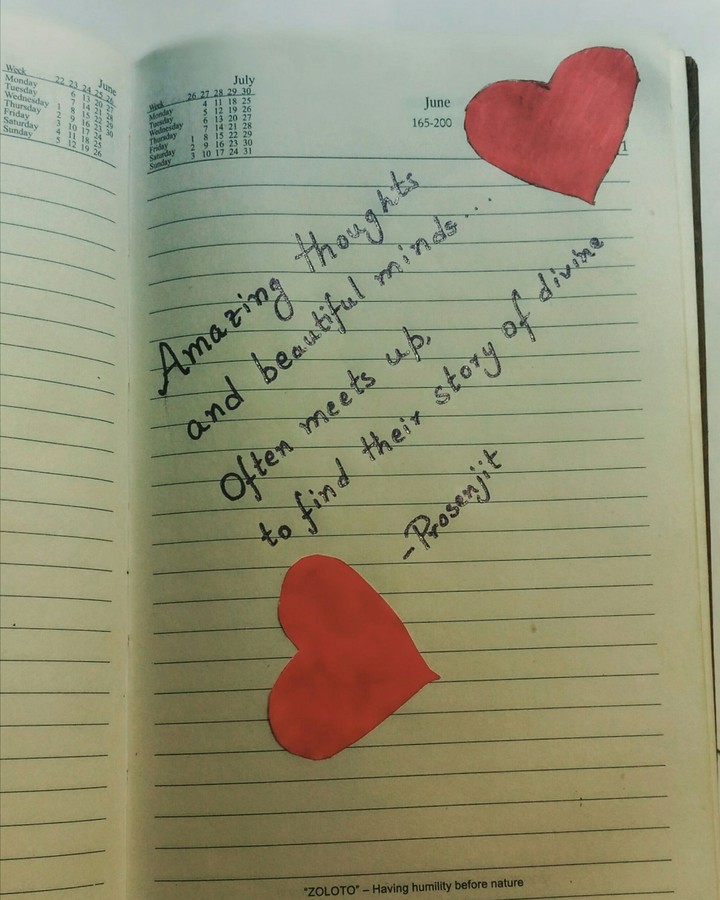 June
Week 22 23 24 25 26
Monday 6 13 20 27
Tuesday 7 14 21 28
Wednesday 1 8 15 22 29
Thursday 2 9 16 23 30
Friday 3 10 17 24
Saturday 4 11 18 25
Sunday 5 12 19 26
July
Week 26 27 28 29 30
Monday 4 11 18 25
Tuesday 5 12 19 26
Wednesday 6 13 20 27
Thursday 7 14 21 28
Friday 1 8 15 22 29
Saturday 2 9 16 23 30
Sunday 3 10 17 24 31
June
165-200
1
Amazing thoughts
and beautiful minds....
Often meets up,
to find their story of divine
-Prosenjit
"ZOLOTO" – Having humility before nature